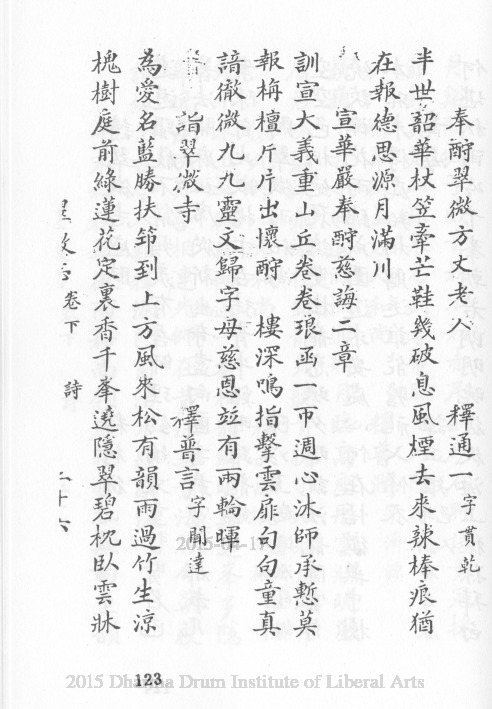 奉酧翠微方丈老人 釋通一字貫乾
半世韶華杖笠牽芒鞋幾破息風煙去來辣棒痕猶
在報德思源月滿川
宣華嚴奉酧慈誨二章
訓宣大義重山丘卷卷琅函一帀週心沐師承慙莫
報栴檀片片出懷酧 樓深鳴指擊雲扉句句童真
諳徹微九九靈文歸字母慈恩竝有兩輪暉
詣翠微寺 釋普言字聞達
為愛名藍勝扶笻到上方風來松有韻雨過竹生涼
槐樹庭前綠蓮花定裏香千峯遶隱翠碧枕臥雲牀
卷下 詩 二十六
123
2015 Dharma Drum Institute of Liberal Arts